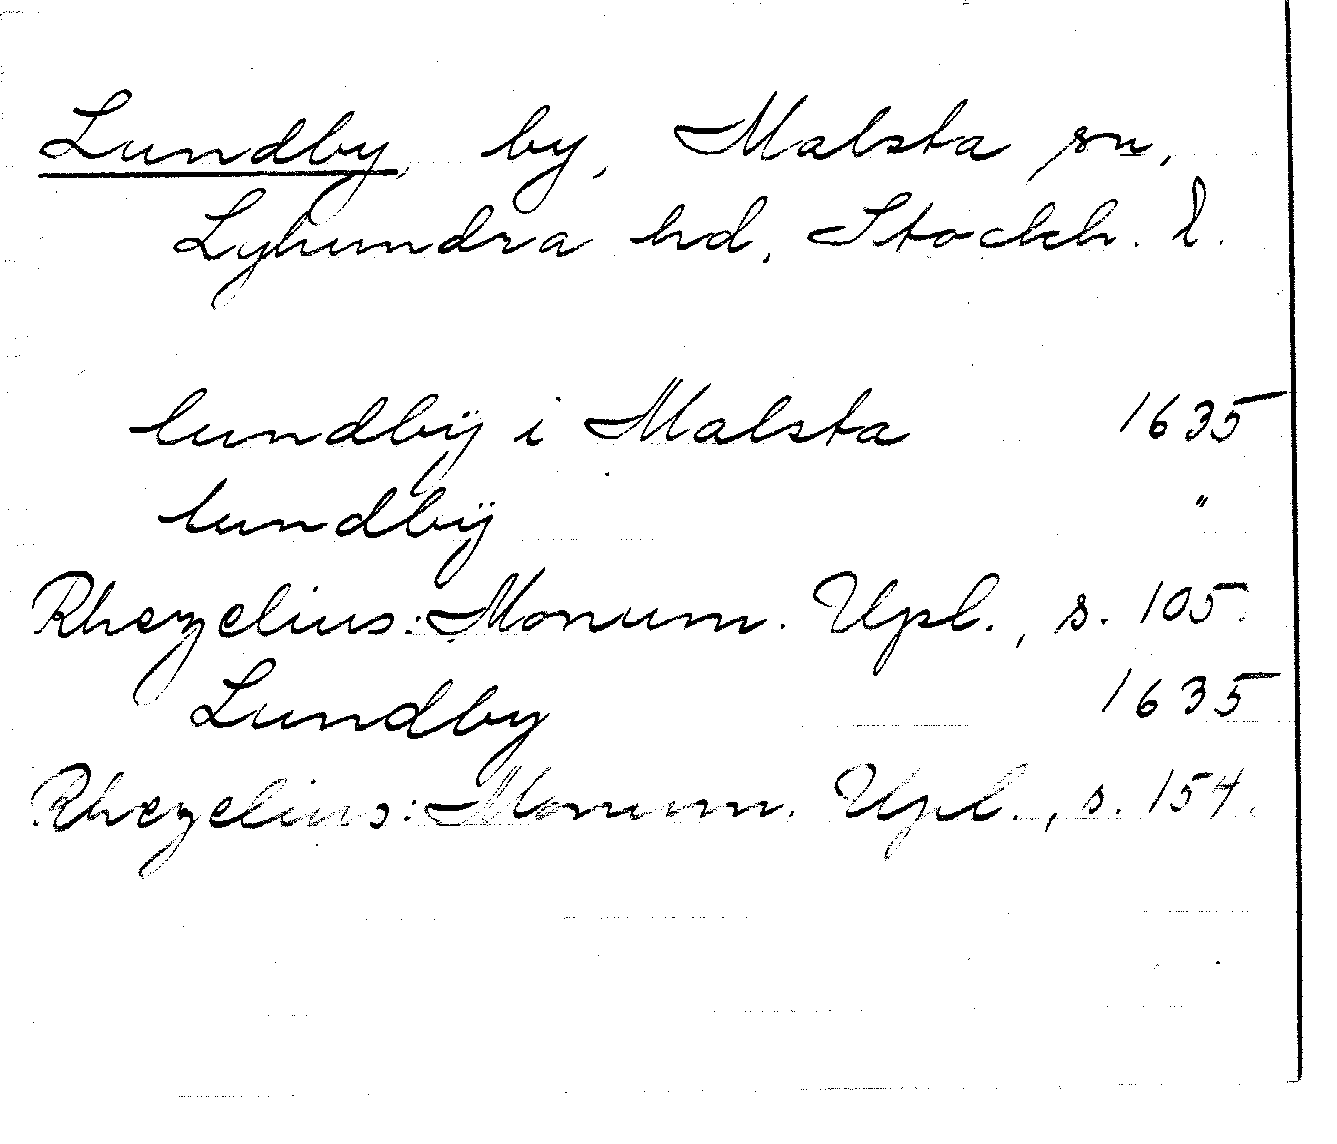 Lundby, by, Malsta sn,
Lyhundra hd, Stockh. l.
lundbÿ i Malsta 1635
lundbÿ "
Rhezelius: Monum. Upl., s. 105.
Lundby 1635
Rhezelius: Monum. Upl., s. 154.